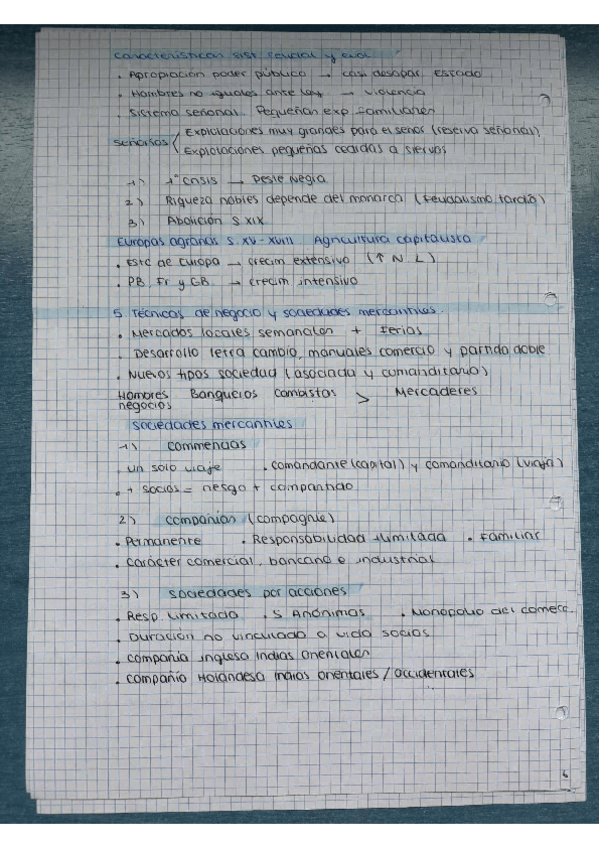 Características sist. feudal y evol.
. Apropiación poder público → casi desapar. estado
. Hombres no iguales ante ley → violencia
. Sistema señorial. Pequeñas exp familiares
Señoríos Explotaciones muy grandes para el señor (reserva señorial)
Explotaciones pequeñas cedidas a siervos
1) 1ª crisis → Peste Negra
2) Riqueza nobles depende del monarca (feudalismo tardío)
3) Abolición S. XIX
Europas agrarias S. XV-XVIII Agricultura capitalista
. Este de Europa → crecim extensivo (↑ N. L)
. PB, Fr y GB. → crecim intensivo
5. Técnicas de negocio y sociedades mercantiles.
. Mercados locales semanales + ferias
. Desarrollo letra cambio, manuales comercio y partida doble
. Nuevos tipos sociedad (asociada y comanditario)
Hombres negocios Banqueros Cambistas > Mercaderes
Sociedades mercantiles
1) Commendas
. un solo viaje . comandante (capital) y comanditario (viaja)
. + socios = riesgo + compartido
2) Compañías (compagnie)
. Permanente . Responsabilidad ilimitada . Familiar
. Carácter comercial, bancario e industrial
3) Sociedades por acciones
. Resp. Limitada . S Anónimas . Monopolio del comerc.
. Duración no vinculada a vida socios
. Compañía inglesa Indias Orientales
. Compañía Holandesa Indias orientales / occidentales
6